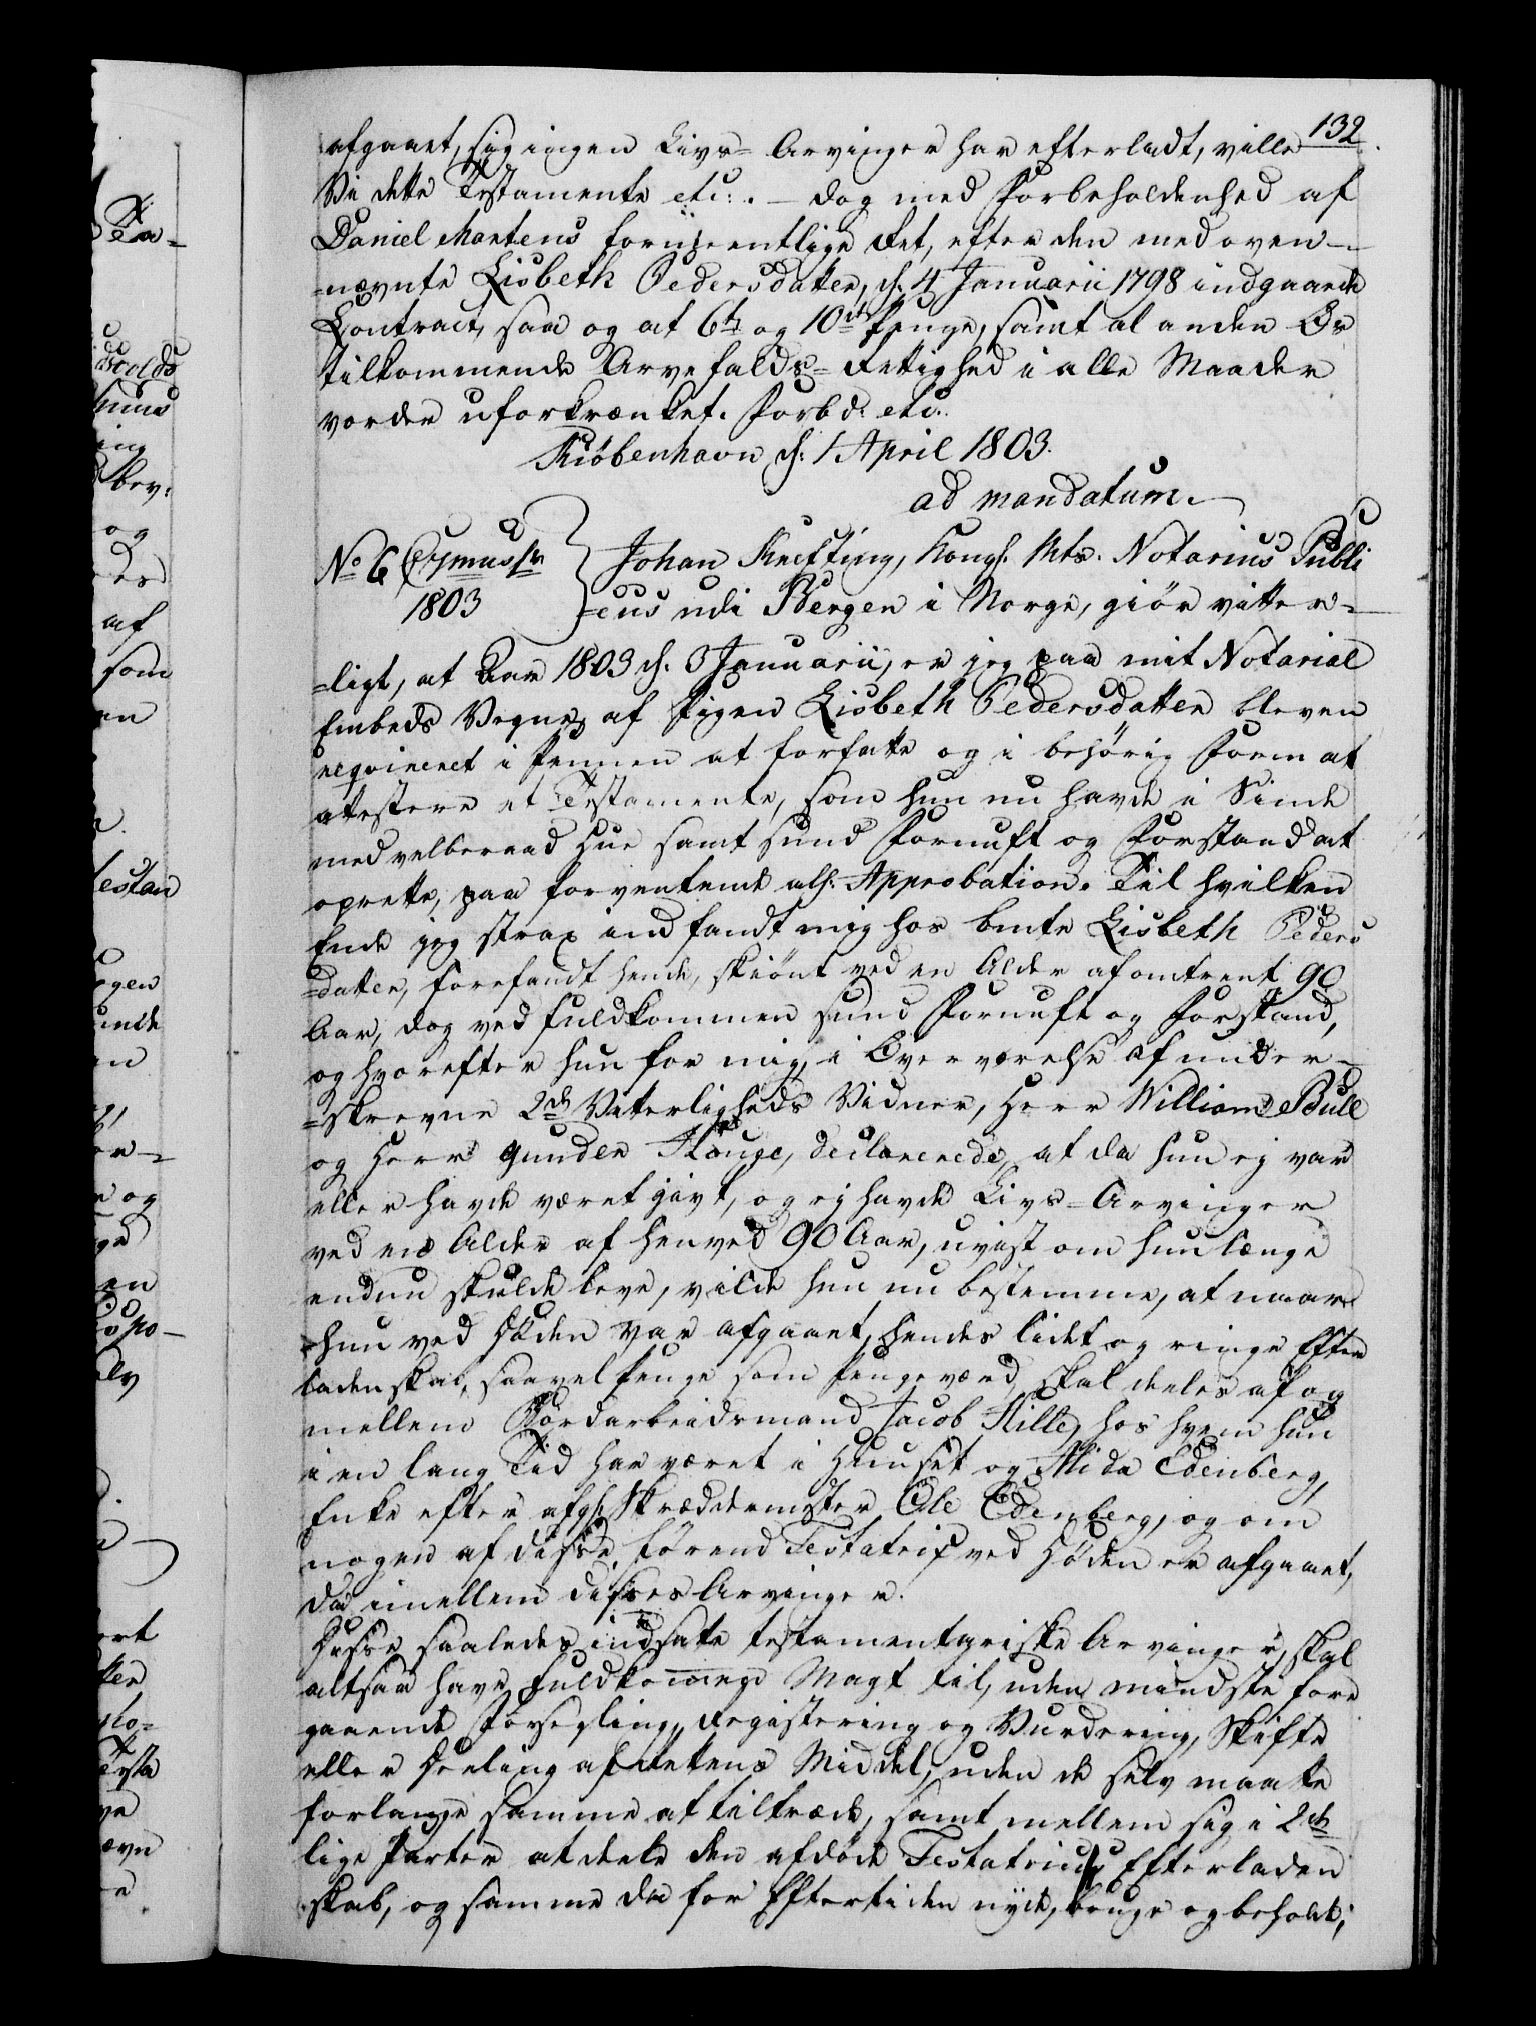 132.
afgaaet, sig ingen Livs- Arvinger har efterladt, ville
Vi dette Testamente etc: . - dog med Forbeholdenhed af
Daniel Martens formeentlige Ret, efter den med oven-
=nævnte Lisbeth Pedersdatter, d. 4 Januarii 1798 indgaaede
Contract, saa og at 6te og 10de Penge, samt al anden Os
tilkommende Arvefalds- Rettighed i alle Maader
vorder uforkrænket. Forbd. etc.
Kiöbenhavn d: 1 April 1803.
ad mandatum.
No 6
1803
Johan Krefting, Kongl. Mts. Notarius Publi
=cus udi Bergen i Norge, giör vitter-
=ligt, at Aar 1803 d. 3 Januarii, er jeg paa mit Notarial
Embeds Vegne, af Pigen Lisbeth Pedersdatter bleven
requireret i Pennen at forfatte og i behörig Form at
attestere et Testamente, som hun nu havde i Sinde
med velberaad Hue samt sund Fornuft og Forstand at
oprette, paa forventende all. Approbation. Til hvilken
Ende jeg strax indfandt mig hos bmte Lisbeth Peders
=datter, forefandt hende, skiönt ved en Alder af omtrent 90
Aar, dog ved fuldkommen sund Fornuft og Forstand,
og hvorefter hun for mig, i Overværelse af under-
=skrevne 2de Vitterligheds Vidner, Herr William Bull
og Herr Gunder Houge, declarerede, at da hun ej var
eller havde været givt, og ej havde Livs-Arvinger
ved en Alder af henved 90 Aar, uvist om hun længe
endnu skulde leve, vilde hun nu bestemme, at naar
hun ved Döden var afgaaet, hendes lidet og ringe Efter
ladenskab, saavel Penge som Penge værd, skal deeles af og
mellem Jacob Hille, hos hvem hun
i en lang Tid har været i Huuset og Alida Edenberg,
Enke efter afgl. Skrædermester Ole Edenberg, og om
nogen af disse, förend Testatrix ved Döden er afgaaet,
da imellem disses Arvinger.
Disse saaledes indsatte testamentariske Arvinger, skal
altsaa have fuldkommen Magt til, uden mindste fore
gaaende Forsegling, Registering og Vurdering, Skifte
eller Deeling af Rettens Middel, uden de selv maatte
forlange samme at tiltræde, samt mellem sig i 2de
lige Parter at deele den afdöde Testatrices Efterladen
skab, og samme da for Eftertiden nyde, bruge og beholde,